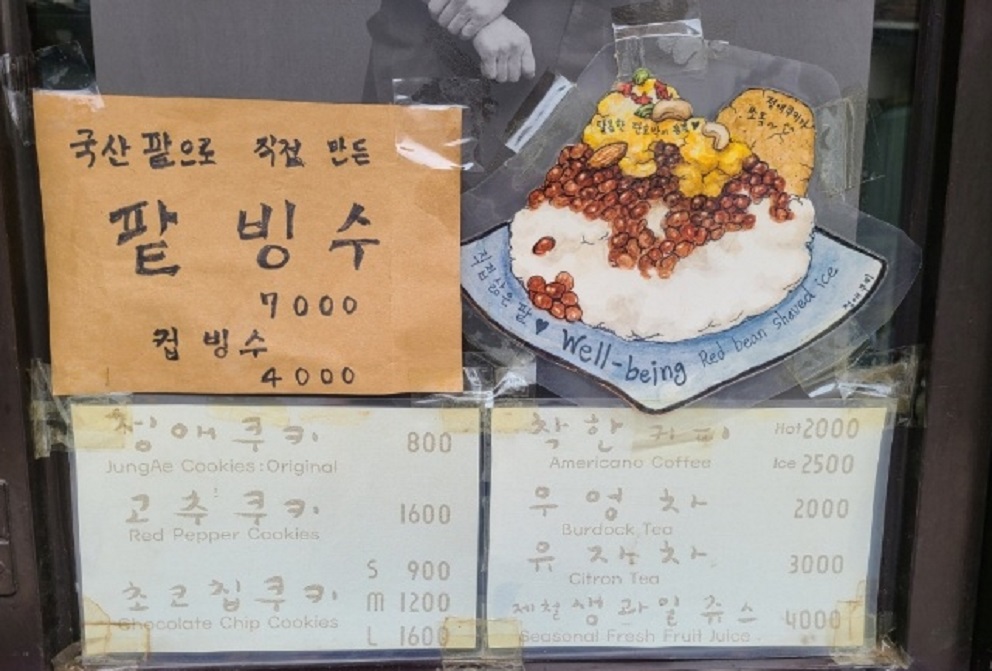 국산 팥으로 직접 만든
팥 빙 수
7000
컵 빙수
4000
직접 삶은 팥 ♥ Well-being Red bean shaved ice
정애쿠키 800
JungAe Cookies:Original
고추쿠키 1600
Red Pepper Cookies
S 900
초코칩쿠키 M 1200
Chocolate Chip Cookies
L 1600
착한커피 Hot 2000
Americano Coffee Ice 2500
우엉차 2000
Burdock Tea
유자차 3000
Citron Tea
제철 생과일쥬스 4000
Seasonal Fresh Fruit Juice